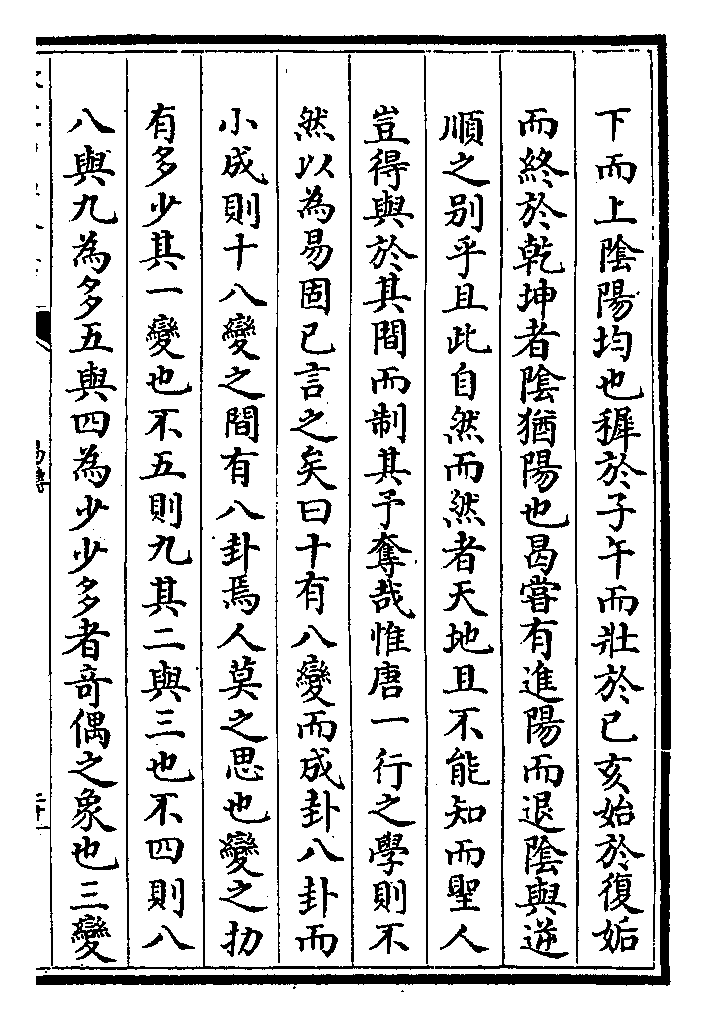 下而上陰陽均也穉於子午而壯於巳亥始於復姤
而終於乾坤者陰猶陽也曷嘗有進陽而退陰與逆
順之别乎且此自然而然者天地且不能知而聖人
豈得與於其間而制其予奪哉惟唐一行之學則不
然以為易固已言之矣曰十有八變而成卦八卦而
小成則十八變之間有八卦焉人莫之思也變之扐
有多少其一變也不五則九其二與三也不四則八
八與九為多五與四為少少多者奇偶之象也三變
易傳